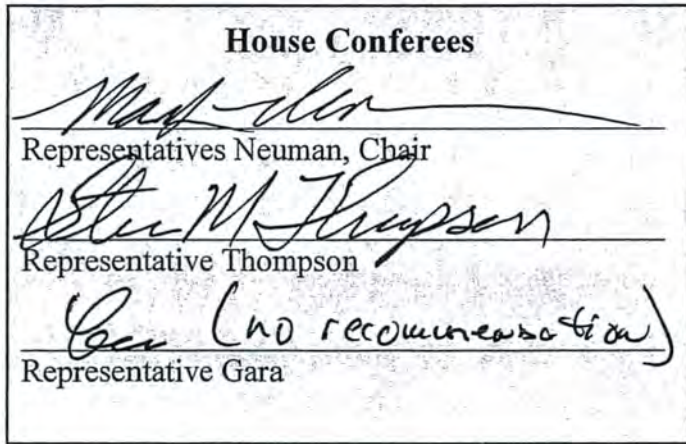 House Conferees
Mark
Representatives Neuman, Chair
Steve M Thompson
Representative Thompson
(no recommendation)
Representative Gara